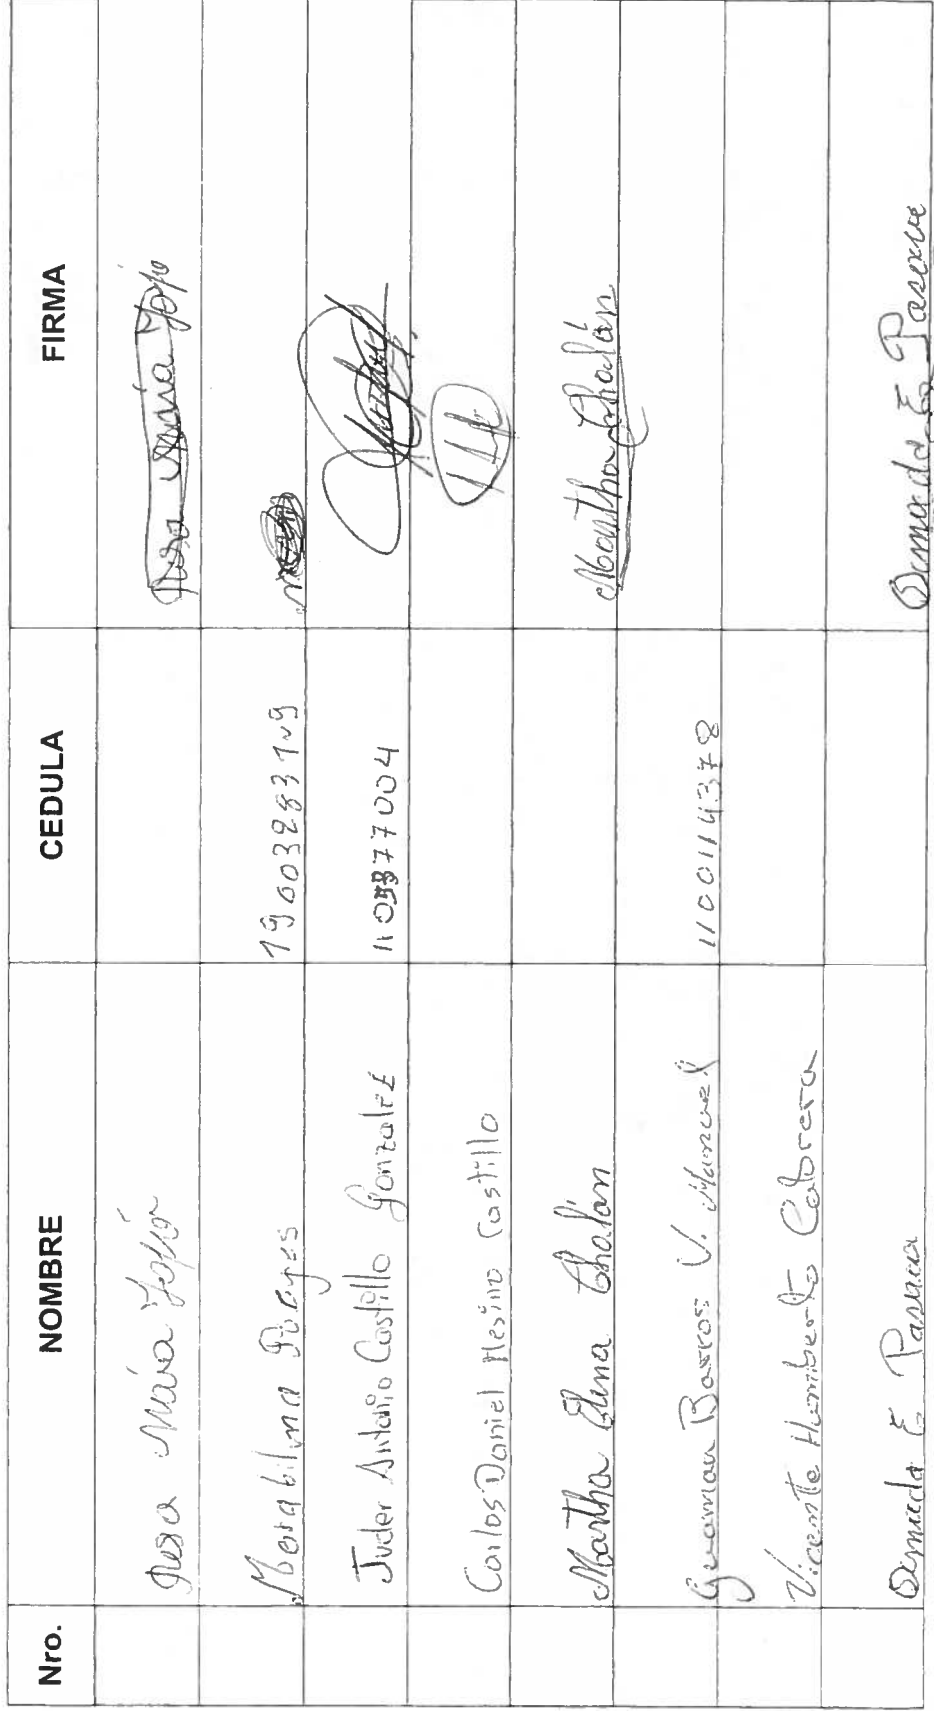 Nro. NOMBRE CEDULA FIRMA
Rosa María Rosa María
Morabilma Reyes 1900328319
Juder Antonio Castillo Gonzalez 11077004
Carlos Daniel Mesino Castillo
Martha Elena Chalán Martha Chalán
Guaman Barros V. Manuel 1100114378
Vicente Humberto Cabrera
E E